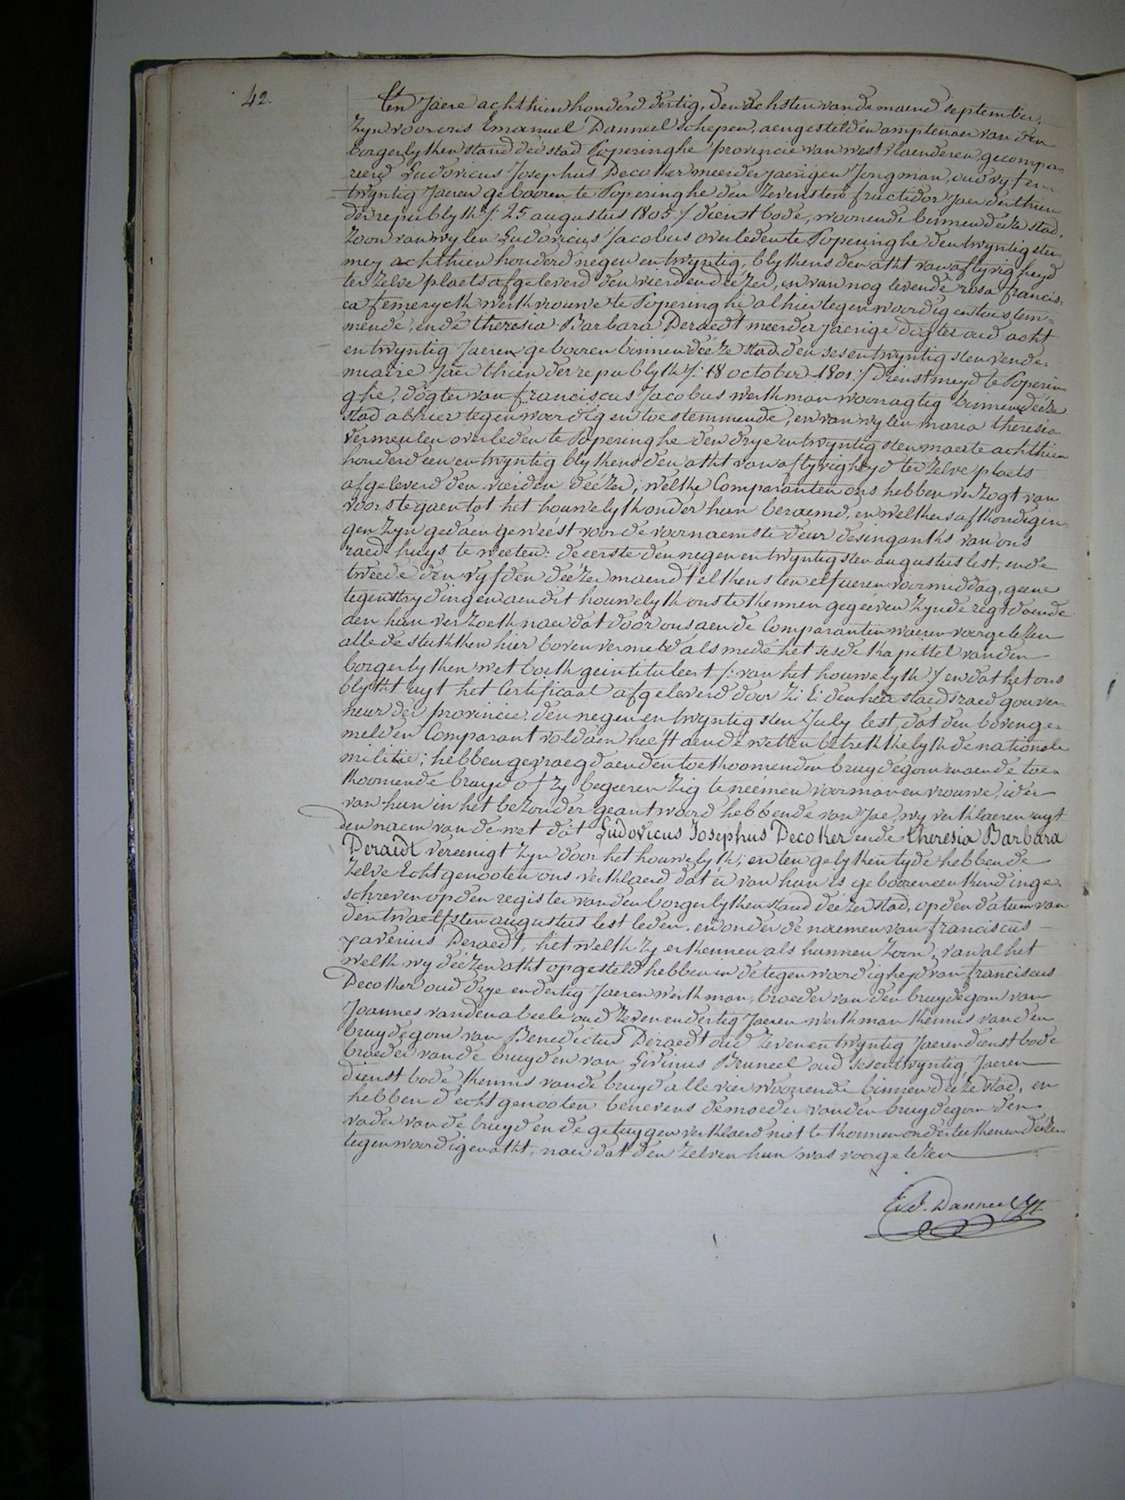 42.
Ten Jaere achthien honderd dertig, den achsten van de maend september,
Zyn voor ons Emanuel Danneel schepen, aengestelden amptenaer van den
borgerlyken stand der stad Poperinghe provincie van west vlaenderen gecompa-
reerd Ludovicus Josephus Decoker meerderjaerigen Jongman, oud vyf en
twyntig Jaeren gebooren te Poperinghe den Zevensten fructidor Jaer derthien
der republyk /: 25 augustus 1805 :/ dienstbode, woonende binnen deéze stad,
Zoon van wylen Ludovicus Jacobus overleden te Poperinghe den twyntigsten
mey achthien honderd negen en twyntig, blykens den akt van aflyvigheyd
ter zelve plaets afgeleverd den vierden deézer, en van nog levende rosa francis-
ca femeryck werkvrouwe te Poperinghe alhier tegenwoordig en toestem-
mende, ende theresia Barbara Deraedt meerderjaerige dogter oud acht
en twyntig Jaeren gebooren binnen deéze stad den ses en twyntigsten vende-
miaire Jaer thien der republyk /: 18 october 1801 :/ dienstmeyd te Poperin-
ghe, dogter van franciscus Jacobus werkman woonagtig binnen deéze
stad alhier tegenwoordig en toestemmende, en van wylen maria theresia
vermeulen overleden te Poperinghe den drye en twyntigsten maerte achthien
honderd een en twyntig blykens den akt van aflyvigheyd ter zelve plaets
afgeleverd den vierden deézer; welke Comparanten ons hebben verzogt van
voorstegaen tot het houwelyk onder hun beraemd, en welkers afkondigin-
gen zyn gedaen geweést voor de voornaemste deur des inganks van ons
raed-huys te weeten: de eerste den negen en twyntigsten augustus lest, en de
tweede den vyfden deézer maend telkens ten elf ueren voormiddag, geene
tegenstrydingen aen dit houwelyk ons te kennen gegeéven zynde regtdoende
aen hun verzoek naer dat door ons aen de Comparanten waeren voorgelezen
alle de stukken hier boven vermeld als mede het sesde kapittel van den
borgerlyken wetboek geintituleert /: van het houwelyk :/ en dat het ons
blykt uyt het Certificaet afgeleverd door Z: E: den heer staedsraed gouver-
neur der provincie, den negen en twyntigsten July lest, dat den bovenge-
melden Comparant voldaen heeft aen de wetten betrekkelyk de nationale
militie; hebben gevraegd aen den toekoomenden bruydegom en aen de toe-
koomende bruyd of zy begeeren zig te neémen voor man en vrouwe, ider
van hun in het bezonder geantwoord hebbende van Jae, wy verklaeren uyt
den naem van de wet dat Ludovicus Josephus Decoker ende theresia Barbara
Deraedt vereenigt zyn door het houwelyk; en ten gelyken tyde hebben de
zelve Echtgenooten ons verklaerd dat er van hun is gebooren een kind inge-
schreven op den register van den borgerlyken stand deézer stad, op den datum van
den twaelfsten augustus lest leden, en onder de naemen van franciscus
xaverius Deraedt, het welk zy erkennen als hunnen zoon, van al het
welk wy deézen akt opgesteld hebben in de tegenwoordigheyd van franciscus
Decoker oud drye en dertig Jaeren werkman, broeder van den bruydegom van
Joannes vandenabeele oud zeven en dertig Jaeren werkman kennis van den
bruydegom van Benedictus Deraedt oud zeven en twyntig Jaeren dienstbode
broeder van de bruyd en van Livinus Bruneel oud ses en twyntig Jaeren
dienstbode kennis van de bruyd alle vier woonende binnen deéze stad, en
hebben d'echtgenooten benevens de moeder van den bruydegom den
vader van de bruyd en de getuygen verklaerd niet te konnen onderteekenen deézen
tegenwoordigen akt, naer dat den zelven hun was voorgelezen
Ed. Danneel